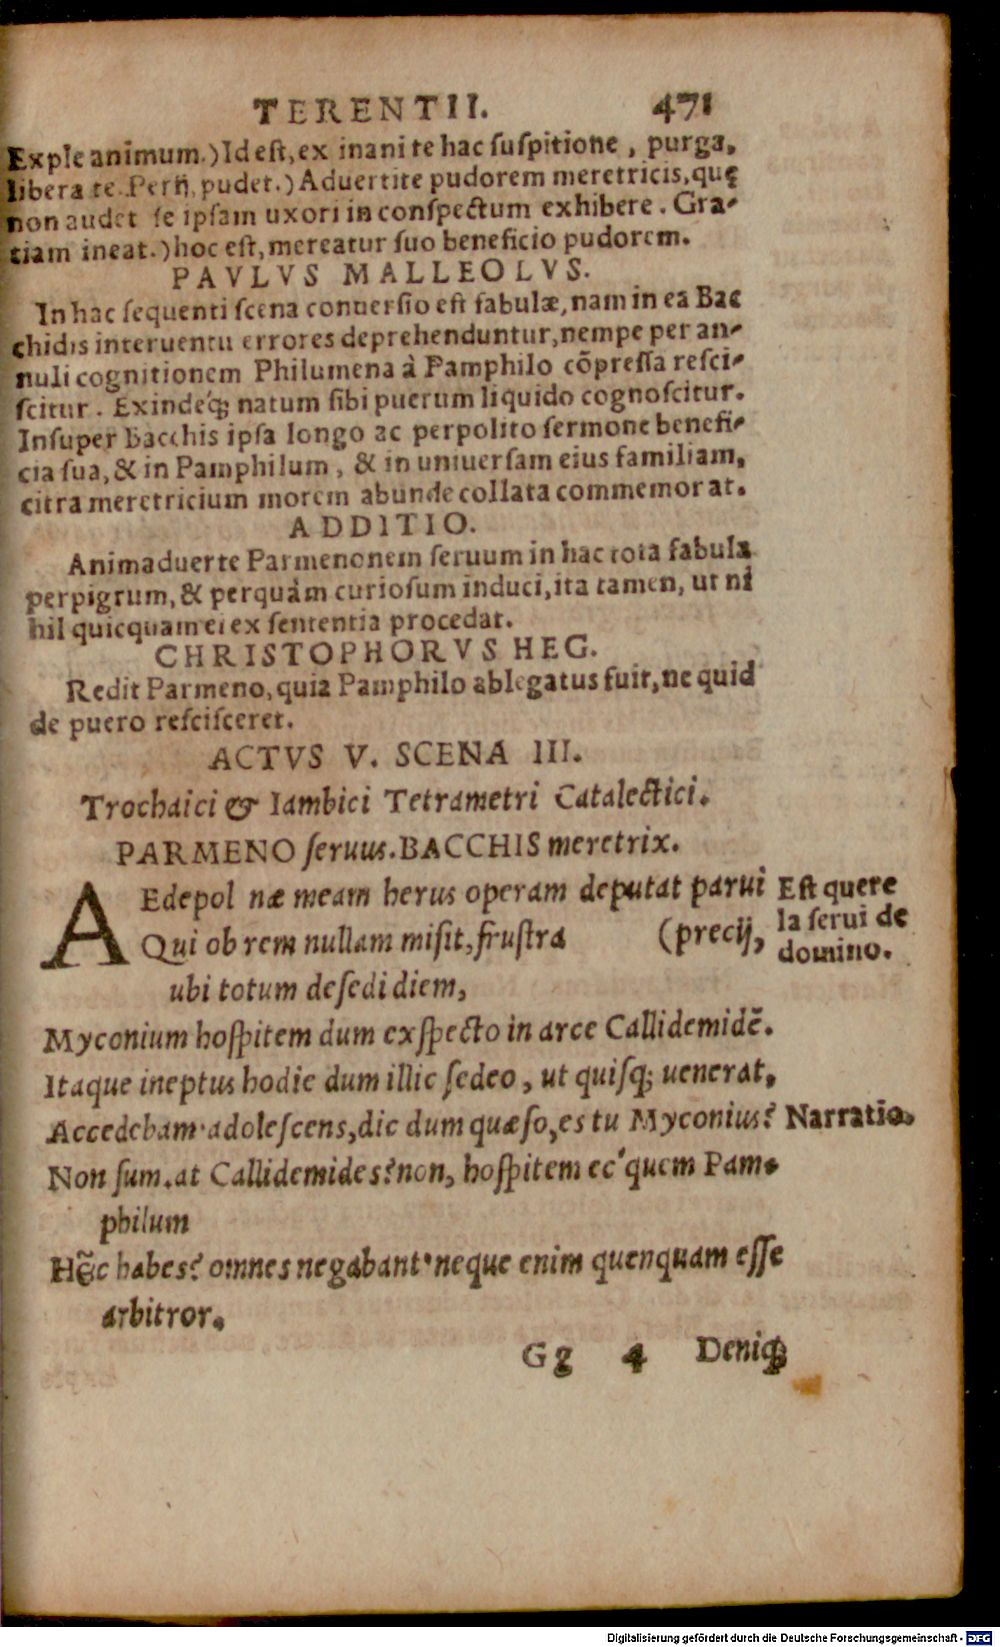 TERENTII. 471
Exple animum.) Id eſt, ex inani te hac ſuſpitione, purga,
libera te. Pern̄, pudet.) Aduertite pudorem meretricis, quę
non audet ſe ipſam uxori in conſpectum exhibere. Gra-
tiam ineat.) hoc eſt, mereatur ſuo beneficio pudorem.
PAVLVS MALLEOLVS.
In hac ſequenti ſcena conuerſio eſt fabulæ, nam in ea Bac
chidis interuentu errores deprehenduntur, nempe per an-
nuli cognitionem Philumena à Pamphilo cõpreſſa reſci-
ſcitur. Exindeq́ꝫ natum ſibi puerum liquido cognoſcitur.
Inſuper Bacchis ipſa longo ac perpolito ſermone benefi-
cia ſua, & in Pamphilum, & in uniuerſam eius familiam,
citra meretricium morem abunde collata commemorat.
ADDITIO.
Animaduerte Parmenonem ſeruum in hac tota fabula
perpigrum, & perquàm curioſum induci, ita tamen, ut ni
hil quicquam ei ex ſententia procedat.
CHRISTOPHORVS HEG.
Redit Parmeno, quia Pamphilo ablegatus fuit, ne quid
de puero reſciſceret.
ACTVS V. SCENA III.
Trochaici & Iambici Tetrametri Catalectici.
PARMENO ſeruus. BACCHIS meretrix.
AEdepol næ meam herus operam deputat parui
Qui ob rem nullam miſit, fruſtra (precij,
ubi totum deſedi diem,
Eſt quere
la ſerui de
domino.
Myconium hoſpitem dum exſpecto in arce Callidemidẽ.
Itaque ineptus hodie dum illic ſedeo, ut quiſqꝫ uenerat,
Accedebam· adoleſcens, dic dum quæſo, es tu Myconius? Narratio.
Non ſum. at Callidemides? non, hoſpitem ec'quem Pam-
philum
Hĩc habes? omnes negabant· neque enim quenquam eſſe
arbitror.
Gg 4 Deniqꝫ
Digitalisierung gefördert durch die Deutsche Forschungsgemeinschaft - DFG